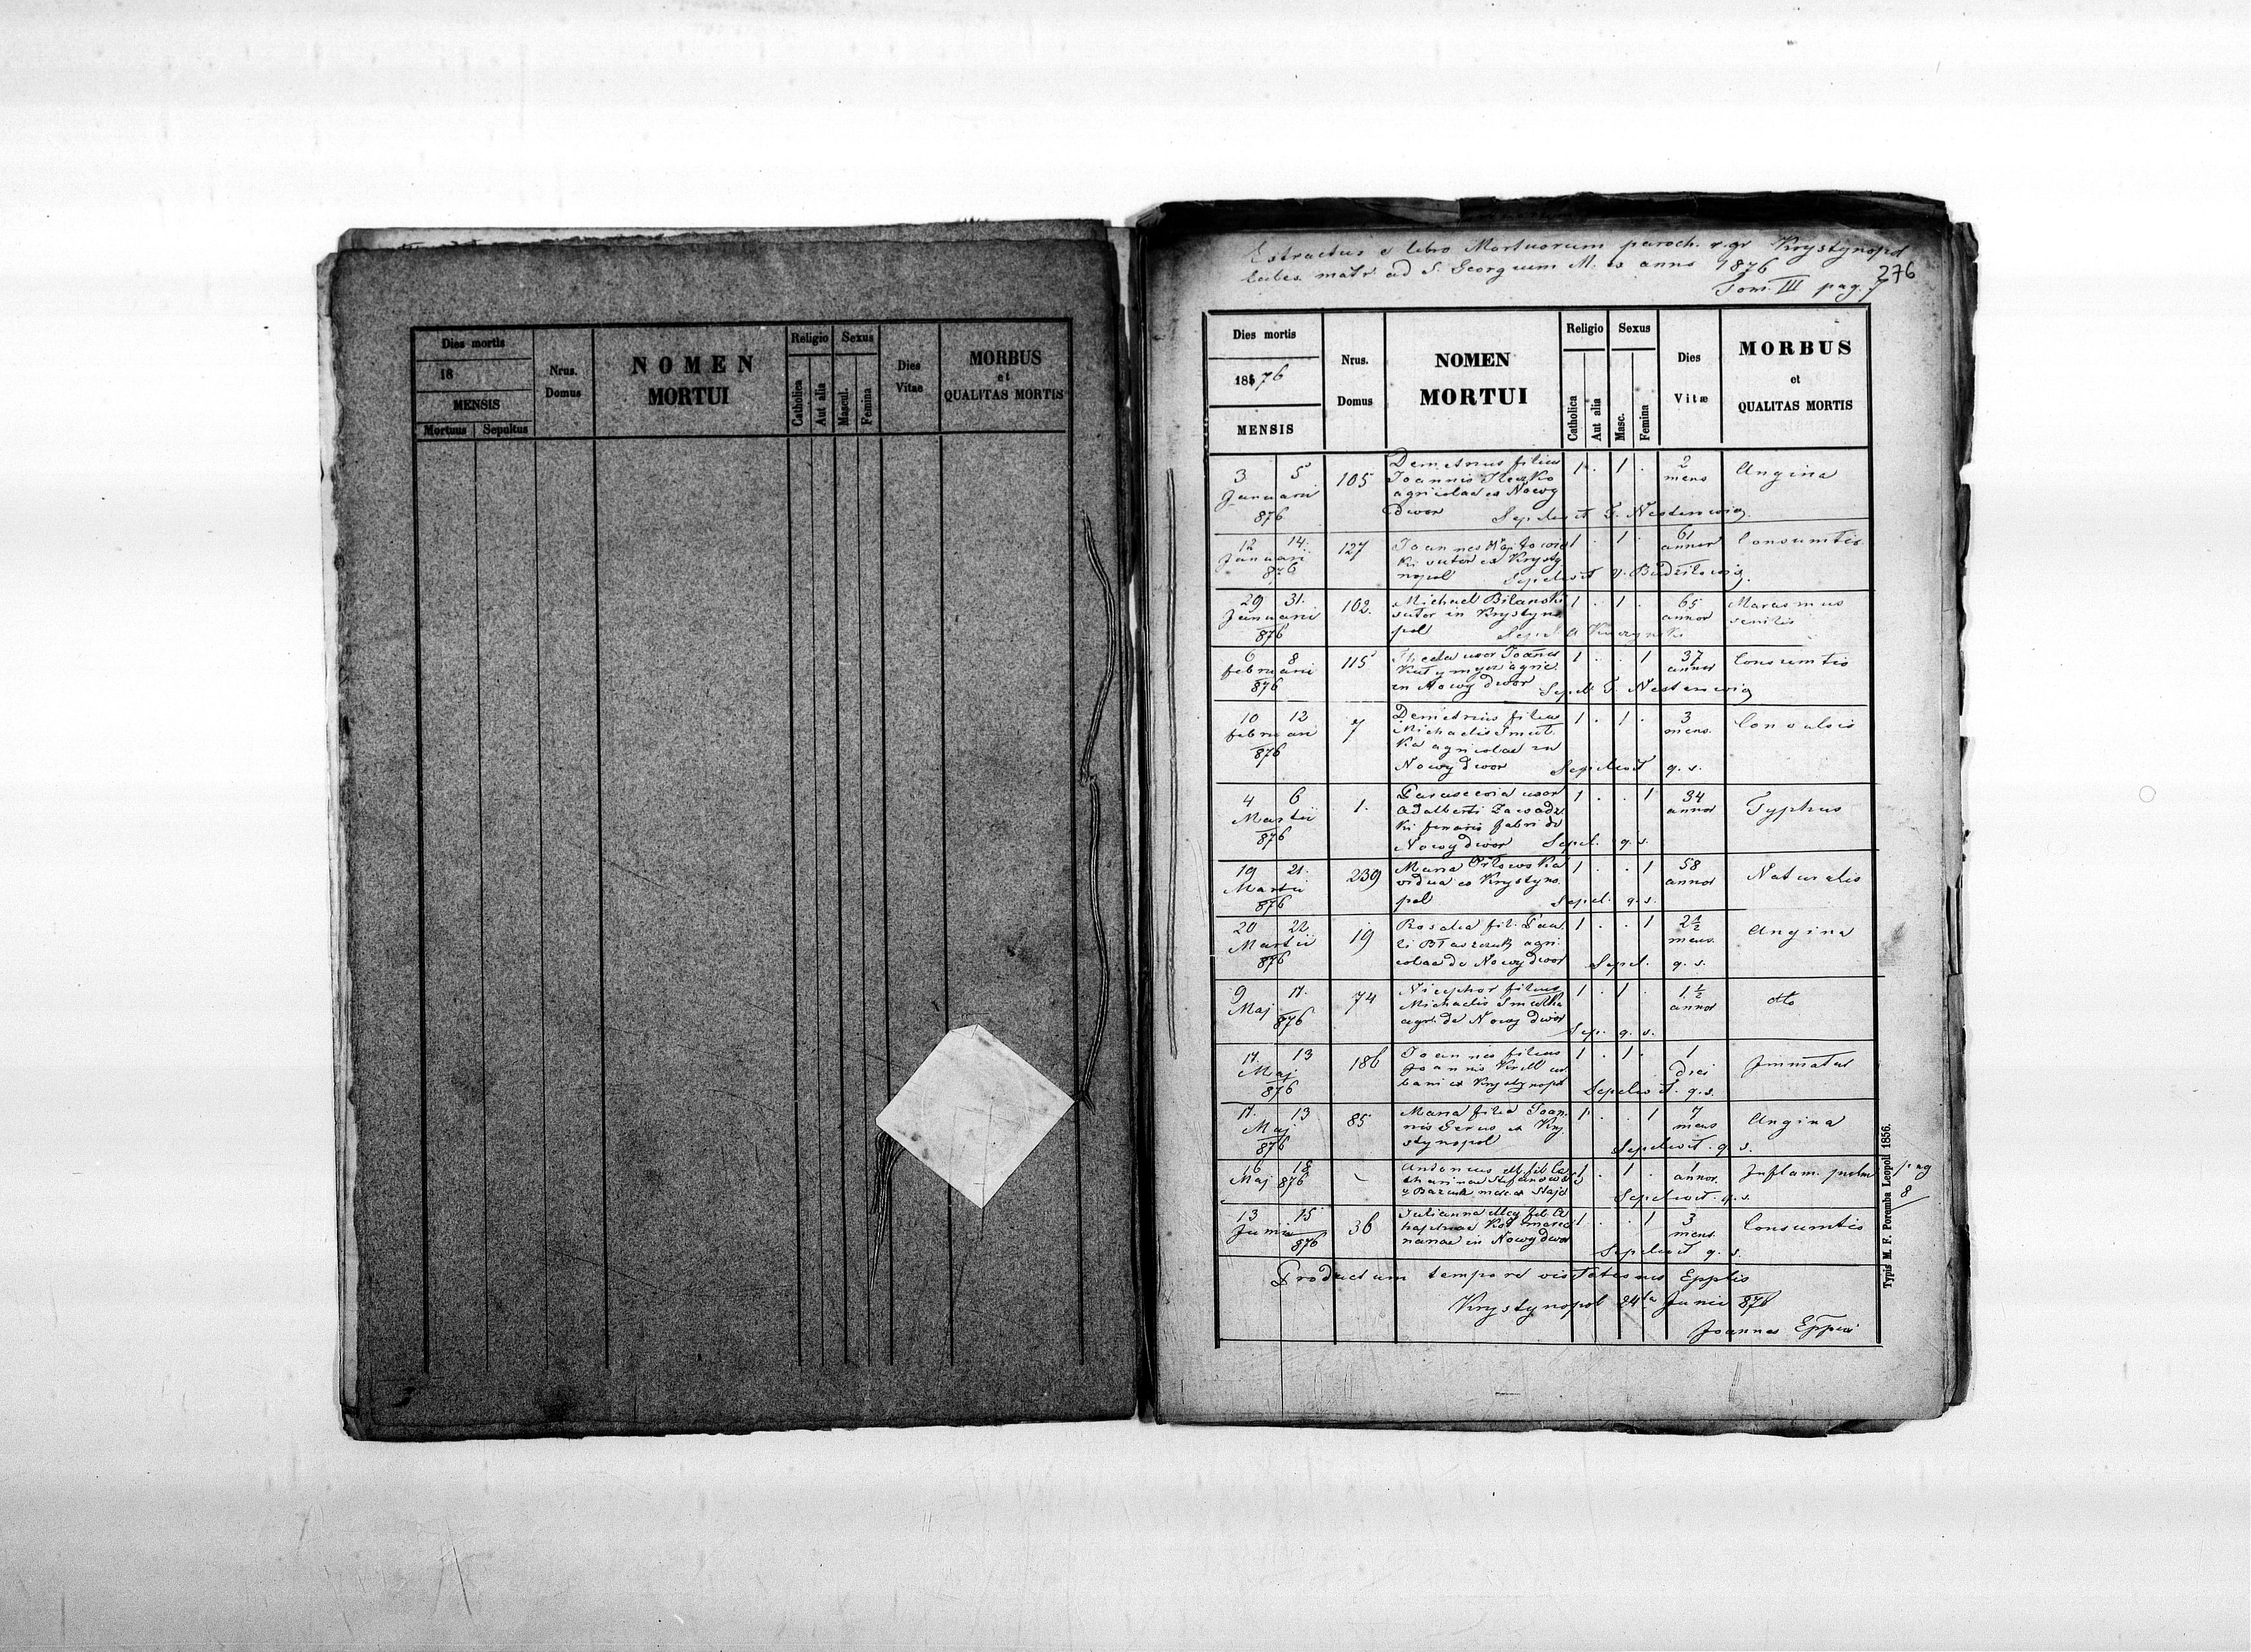 Dies mortis
18
MENSIS
Mortuus Sepultus
Nrus. Domus
NOMEN
MORTUI
Religio
Catholica
Aut alia
Sexus
Mascul.
Femina
Dies Vitae
MORBUS
et
QUALITAS MORTIS
Extractus e libro Mortuorum paroch. r. gr Krystynopol
matr. ad S. Georgium M. ex anno 1876
276
Tom. III pag. 7
Dies mortis
1876
MENSIS
Nrus.
Domus
NOMEN
MORTUI
Religio
Catholica
Aut alia
Sexus
Masc.
Femina
Dies
Vitæ
MORBUS
et
QUALITAS MORTIS
3 5 Januarii 876 105 Demetrius filius 1 . 1 . 2 mens Angina
Joannis
agricolae ex Nowy
dwor Sepelivit
12 14. Januarii 876 127 Joannes 1 . 1 . 61 annor Consumtio
ki sutor ex Krysty
nopol Sepelivit
29 31. Januarii 876 102. Michael Bilanski 1 . 1 . 65 annor Marasmus senilis
sutor in Krystyno
pol Sepel
6 8 februarii 876 115 Thecla uxor Joannis 1 . . 1 37 annor Consumtio
agric
in Nowy dwor Sepel.
10 12 februarii 876 7 Demetrius filius 1 . 1 . 3 mens. Convulsio
Michaelis Smut
ka agricolae in
Nowy dwor Sepelivit q. s.
4 6 Martii 876 1. Parascevia uxor 1 . . 1 34 annor Typhus
Adalberti Zawadz
ki ferrarii fabri de
Nowy dwor Sepel. q. s.
19 21. Martii 876 239 Maria Orłowska 1 . . 1 58 annor Naturalis
vidua ex Krystyno
pol Sepel. q. s.
20 22 Martii 876 19 Rosalia fil. Pau 1 . . 1 2½ mens. Angina
li Błaszczuk agri
colae de Nowy dwor Sepel. q. s.
9 11. Maj 876 74 Nicephor filius 1 . 1 . 1½ annor dto
Michaelis Smutka
agr. de Nowy dwor Sep. q. s.
11. 13 Maj 876 186 Joannes filius 1 . 1 . 1 diei Immatus
Joannis
bani ex Krystynopol Sepelivit. q. s.
11. 13 Maj 876 85 Maria filia Joan 1 . . 1 7 mens Angina
nis ex Kry
stynopol Sepelivit. q. s.
16 18 Maj 876 Antonius ill. fil. Ca 1 . 1 . 1 annor. Inflam. pulm pag 8
tharinae
Sepelivit. q. s.
13 15 Junii 876 36 Julianna illeg fil. A 1 . . 1 3 mens. Consumtio
in Nowy dwor Sepelivit q. s.
Productum tempore visitationis
Krystynopol 24ta Junii 876
Joannes
Typis M. F. Poremba Leopoli 1856.